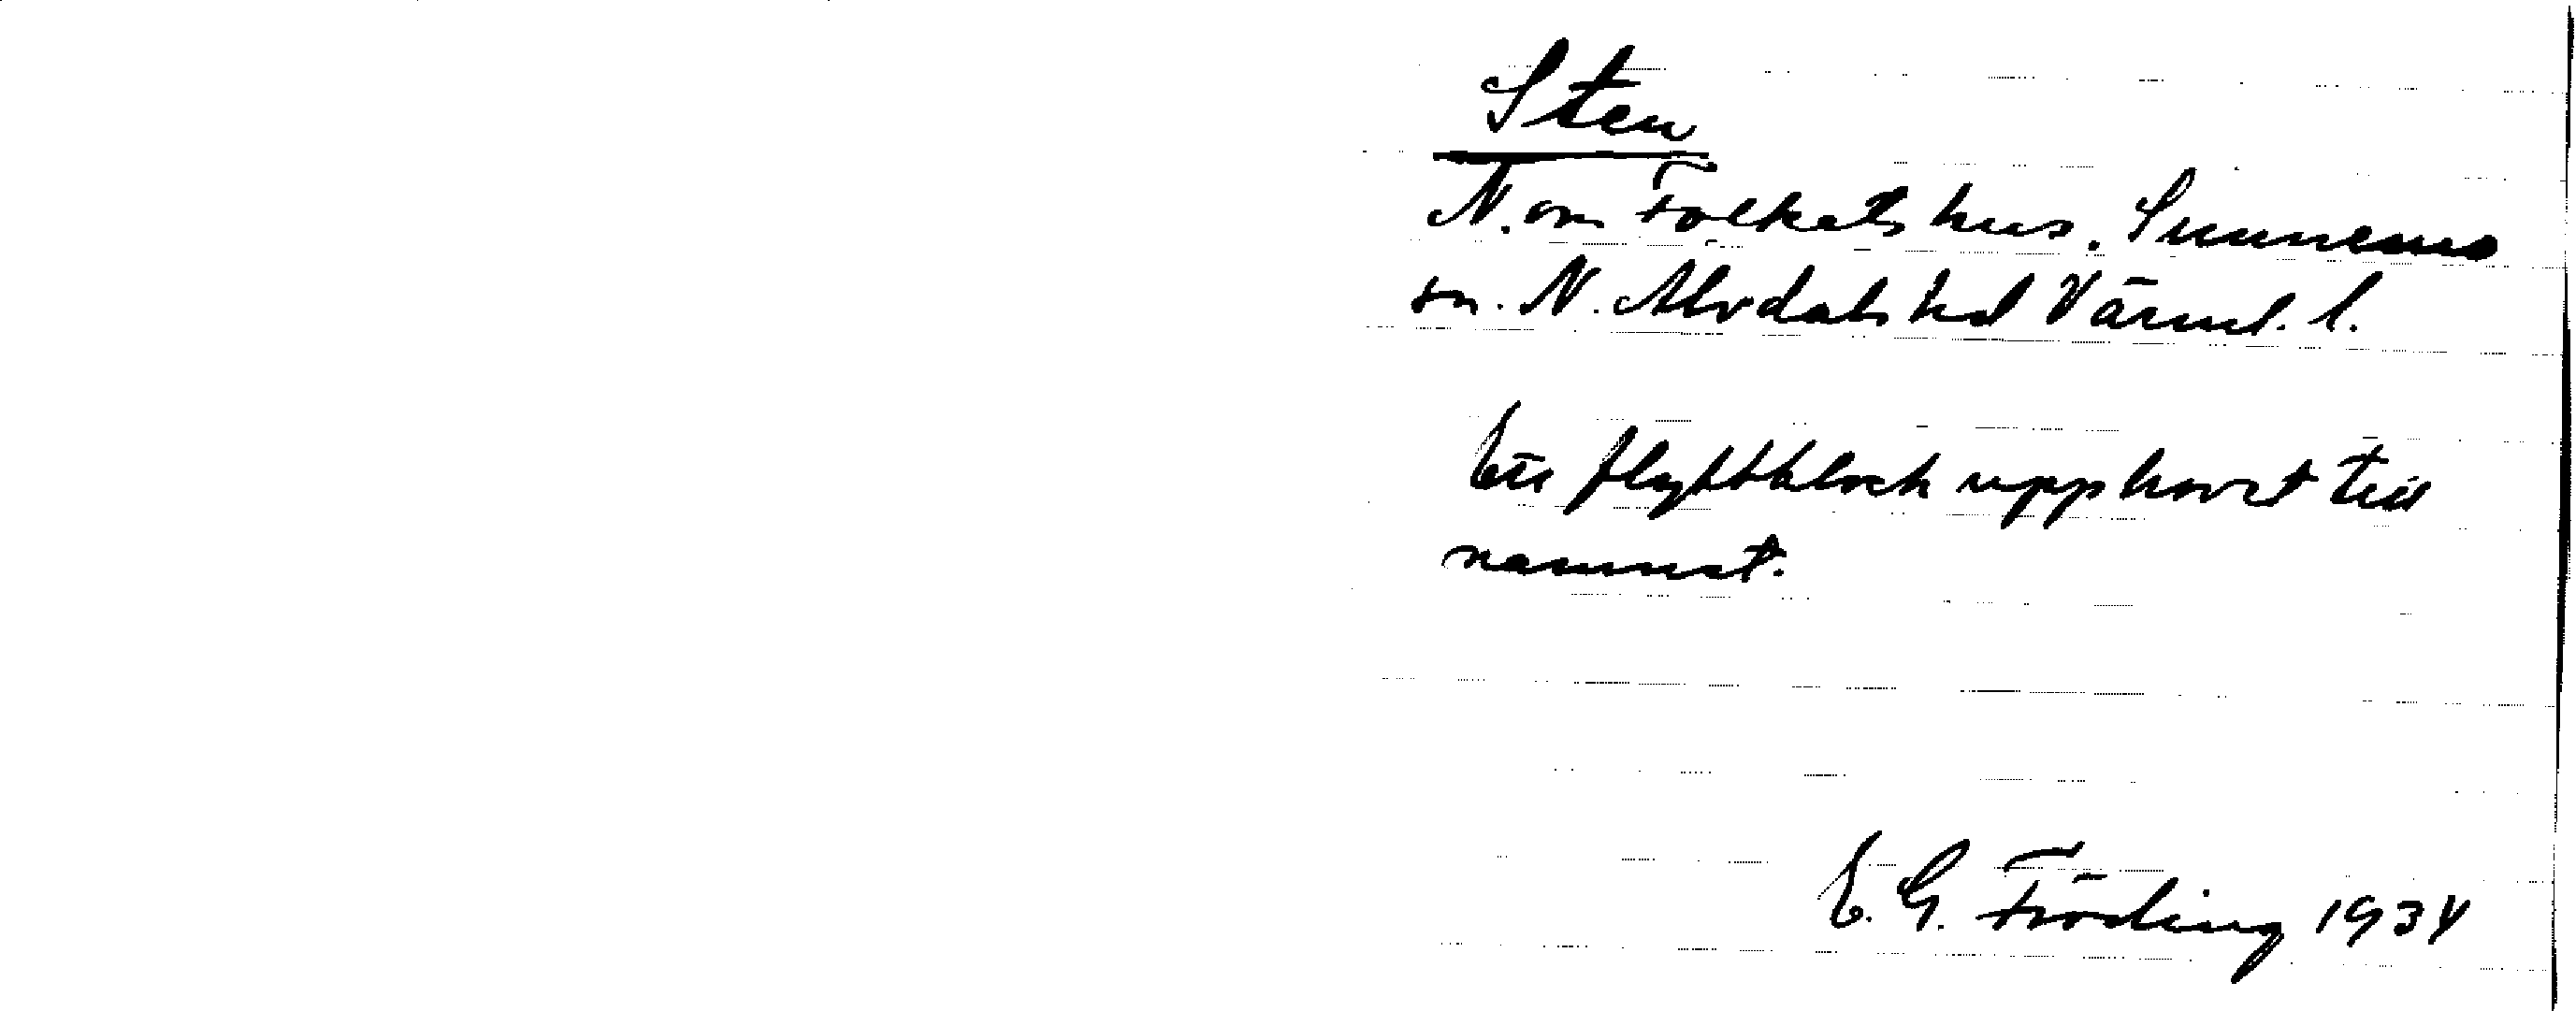 Sten
N. om Folkets hus. Sunnemo
sn. N. Älvdals hd Värml. l.
Ett flyttblock upphovet till
namnet.
E. G. Fröding 1934